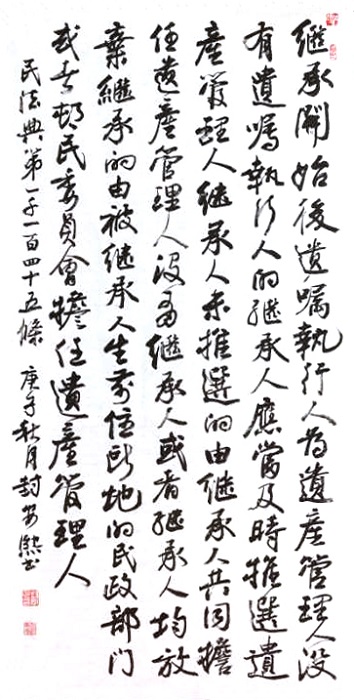 继承開始後遺嘱執行人為遺產管理人没
有遺嘱執行人的継承人應當及時推選遺
產管理人继承人未推選的由继承人共同擔
任遺產管理人没有継承人或者继承人均放
棄継承的由被继承人生前住所地的民政部门
或者邨民委員會擔任遺產管理人
民法典第一千一百四十五條 庚子秋月封安书